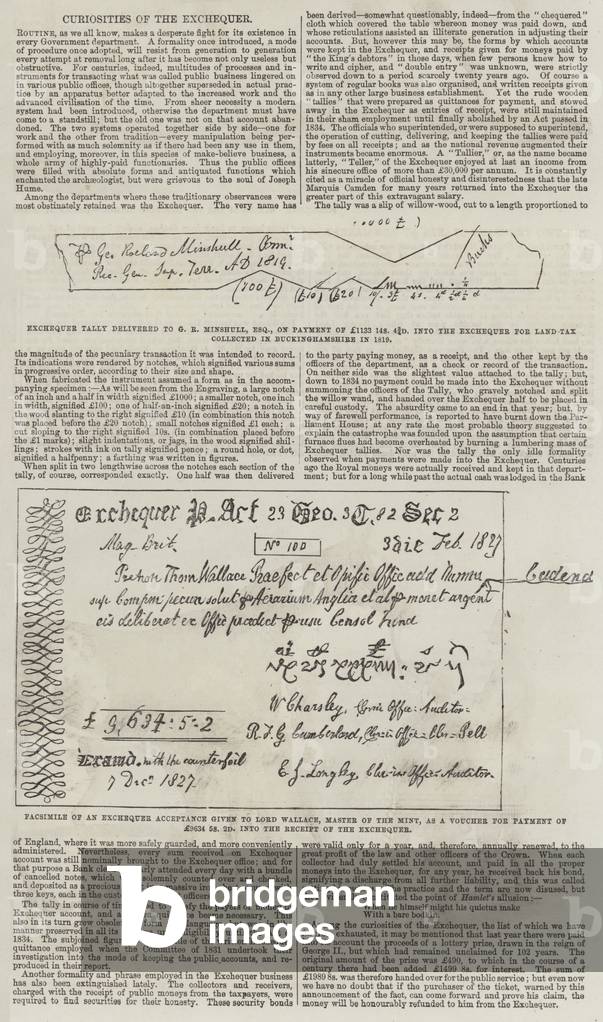 CURIOSITIES OF THE EXCHEQUER.
ROUTINE, as we all know, makes a desperate fight for its existence in
every Government department. A formality once introduced, a mode
of procedure once adopted, will resist from generation to generation
every attempt at removal long after it has become not only useless but
obstructive. For centuries, indeed, multitudes of processes and in-
struments for transacting what was called public business lingered on
in various public offices, though altogether superseded in actual prac-
tice by an apparatus better adapted to the increased work and the
advanced civilisation of the time. From sheer necessity a modern
system had been introduced, otherwise the department must have
come to a standstill; but the old one was not on that account aban-
doned. The two systems operated together side by side—one for
work and the other from tradition—every manipulation being per-
formed with as much solemnity as if there had been any use in them,
and employing, moreover, in this species of make-believe business, a
whole array of highly-paid functionaries. Thus the public offices
were filled with absolute forms and antiquated functions which
enchanted the archæologist, but were grievous to the soul of Joseph
Hume.
Among the departments where these traditionary observances were
most obstinately retained was the Exchequer. The very name has
been derived—somewhat questionably, indeed—from the "chequered"
cloth which covered the table whereon money was paid down, and
whose reticulations assisted an illiterate generation in adjusting their
accounts. But, however this may be, the forms by which accounts
were kept in the Exchequer, and receipts given for moneys paid by
"the King's debtors" in those days, when few persons knew how to
write and cipher, and "double entry" was unknown, were strictly
observed down to a period scarcely twenty years ago. Of course a
system of regular books was also organised, and written receipts given
as in any other large business establishment. Yet the rude wooden
"tallies" that were prepared as quittances for payment, and stowed
away in the Exchequer as entries of receipt, were still maintained
in their sham employment until finally abolished by an Act passed in
1834. The officials who superintended, or were supposed to superintend,
the operation of cutting, delivering, and keeping the tallies were paid
by fees on all receipts; and as the national revenue augmented their
instruments became enormous. A "Tallier," or, as the name became
latterly, "Teller," of the Exchequer enjoyed at last an income from
his sinecure office of more than £30,000 per annum. It is constantly
cited as a miracle of official honesty and disinterestedness that the late
Marquis Camden for many years returned into the Exchequer the
greater part of this extravagant salary.
The tally was a slip of willow-wood, cut to a length proportioned to
Geo Rowland Minshull. Armr.
Rec. Gen. Sup. Terr. AD 1819.
Bucks
(100 £)
(£10) (£20)
EXCHEQUER TALLY DELIVERED TO G. R. MINSHULL, ESQ., ON PAYMENT OF £1133 14S. 4¾D. INTO THE EXCHEQUER FOR LAND-TAX
COLLECTED IN BUCKINGHAMSHIRE IN 1819.
the magnitude of the pecuniary transaction it was intended to record.
Its indications were rendered by notches, which signified various sums
in progressive order, according to their size and shape.
When fabricated the instrument assumed a form as in the accom-
panying specimen:—As will be seen from the Engraving, a large notch
of an inch and a half in width signified £1000; a smaller notch, one inch
in width, signified £100; one of half-an-inch signified £20; a notch in
the wood slanting to the right signified £10 (in combination this notch
was placed before the £20 notch); small notches signified £1 each; a
cut sloping to the right signified 10s. (in combination placed before
the £1 marks); slight indentations, or jags, in the wood signified shil-
lings; strokes with ink on tally signified pence; a round hole, or dot,
signified a halfpenny; a farthing was written in figures.
When split in two lengthwise across the notches each section of the
tally, of course, corresponded exactly. One half was then delivered
to the party paying money, as a receipt, and the other kept by the
officers of the department, as a check or record of the transaction.
On neither side was the slightest value attached to the tally; but,
down to 1834 no payment could be made into the Exchequer without
summoning the officers of the Tally, who gravely notched and split
the willow wand, and handed over the Exchequer half to be placed in
careful custody. The absurdity came to an end in that year; but, by
way of farewell performance, is reported to have burnt down the Par-
liament House; at any rate the most probable theory suggested to
explain the catastrophe was founded upon the assumption that certain
furnace flues had become overheated by burning a lumbering mass of
Exchequer tallies. Nor was the tally the only idle formality
observed when payments were made into the Exchequer. Centuries
ago the Royal moneys were actually received and kept in that depart-
ment; but for a long while past the actual cash was lodged in the Bank
Exchequer P. Act 23 Geo. 3 C. 82 Sec 2
Mag Brit. No 100 3 die Feb. 1827
Prehon Thom Wallace Praefect et Opific Offic
Cudend
pecun solut Aerarium Anglia et al monet argent
eis deliberat ex Offic predict usu Consol Fund
W Charsley, Auditor
£ 9,634-5-2 R. F. G. Cumberland, Pell
Examd. with the counterfoil
7 Decr 1827. E. J. Longley, Auditor
FACSIMILE OF AN EXCHEQUER ACCEPTANCE GIVEN TO LORD WALLACE, MASTER OF THE MINT, AS A VOUCHER FOR PAYMENT OF
£9634 5S. 2D. INTO THE RECEIPT OF THE EXCHEQUER.
of England, where it was more safely guarded, and more conveniently
administered. Nevertheless, every sum received on Exchequer
account was still nominally brought to the Exchequer office; and for
that purpose a Bank attended every day with a bundle
of cancelled notes, which solemnly counted over and checked,
and deposited as a precious
three keys, each in the
The tally in course of
Exchequer account, and a
also in its turn grew obsolete
manner preserved in all its
1834. The subjoined figure
quittance employed when the Committee of 1831 undertook
investigation into the mode of keeping the public accounts, and re-
produced in their report.
Another formality and phrase employed in the Exchequer business
has also been extinguished lately. The collectors and receivers,
charged with the receipt of public moneys from the taxpayers, were
required to find securities for their honesty. These security bonds
were valid only for a year, and, therefore, annually renewed, to the
great profit of the law and other officers of the Crown. When each
collector had duly settled his account, and paid in all the proper
moneys into the Exchequer, for any year, he received back his bond,
signifying discharge from all further liability, and this was called
practice and the term are now disused, but
the point of Hamlet's allusion:—
himself might his quietus make
With a bare bodkin
Among the curiosities of the Exchequer, the list of which we have
exhausted, it may be mentioned that last year there were paid
account the proceeds of a lottery prize, drawn in the reign of
George II., but which had remained unclaimed for 102 years. The
original amount of the prize was £490, to which in the course of a
century there had been added £1499 8s. for interest. The sum of
£1989 8s. was therefore handed over for the public service; but even now
we have no doubt that if the purchaser of the ticket, warned by this
announcement of the fact, can come forward and prove his claim, the
money will be honourably refunded to him from the Exchequer.
b bridgeman
images